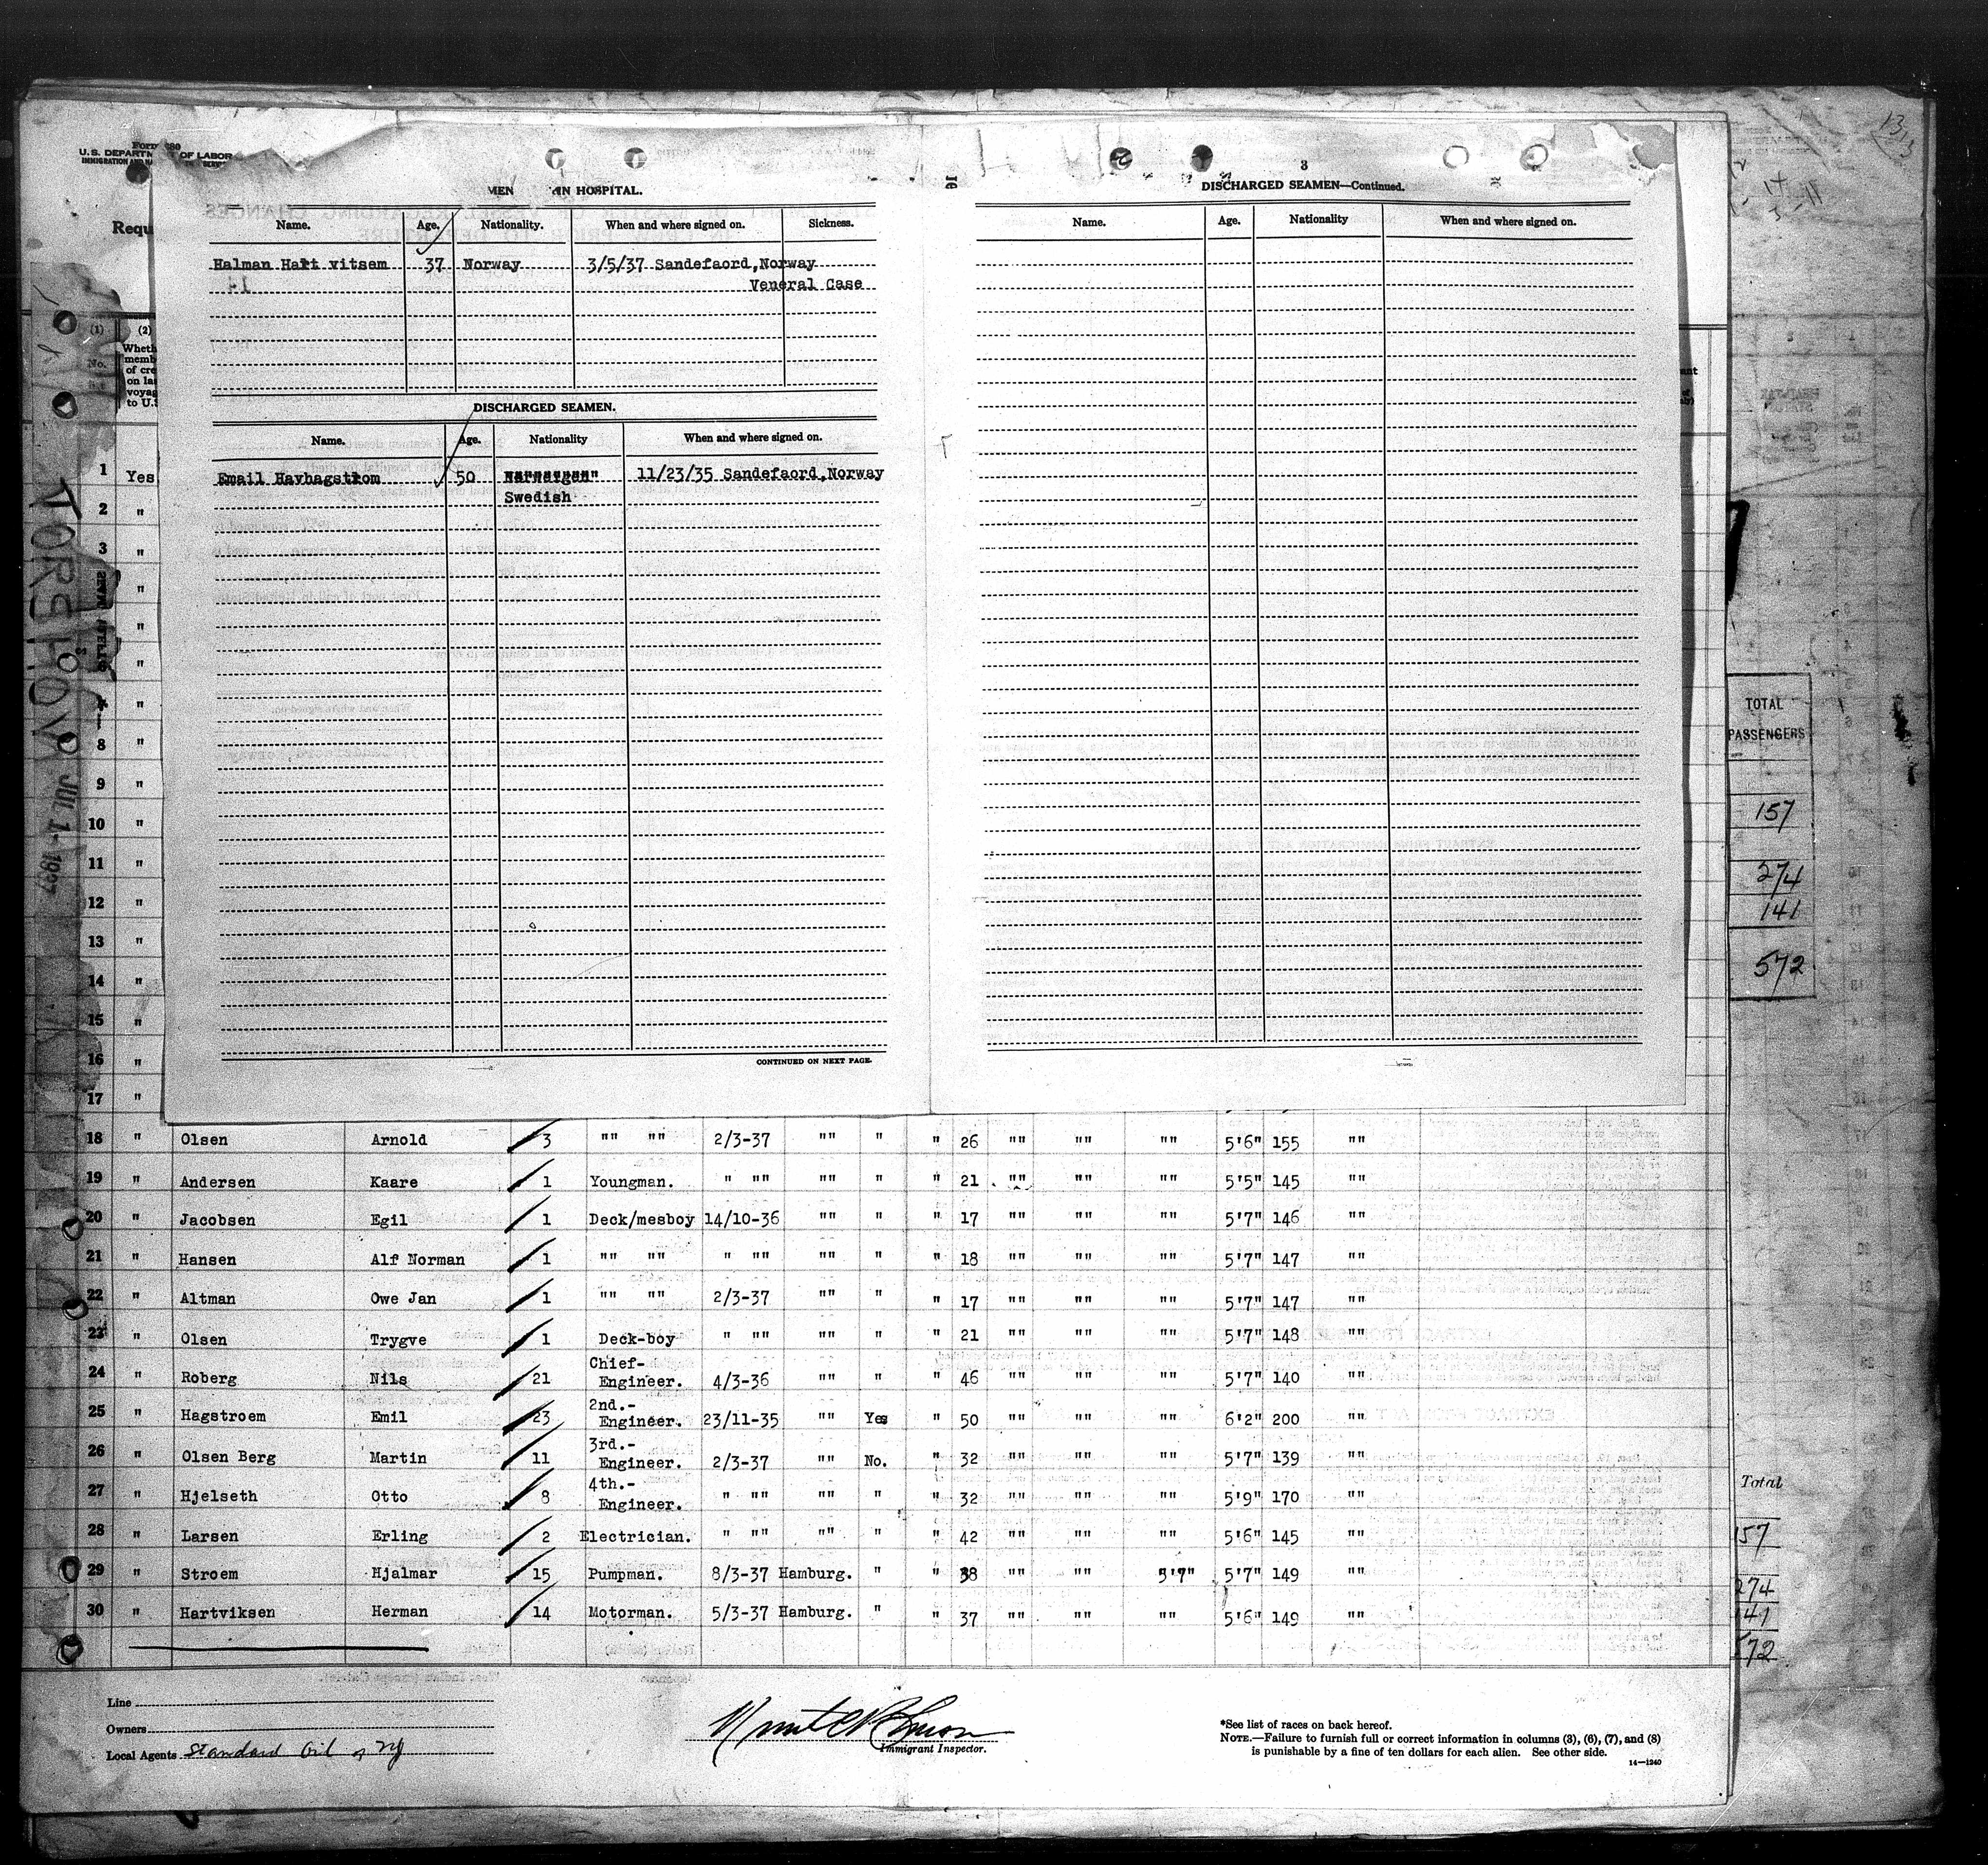 U.S. DEPARTM OF LABOR
Requ
MEN IN HOSPITAL.
Name. Age. Nationality. When and where signed on. Sickness.
Halman Hart vitsem 37 Norway 3/5/37 Sandefaord,Norway
Veneral Case
DISCHARGED SEAMEN.
Name. Age. Nationality When and where signed on.
Email Havhagstrom 50 11/23/35 Sandefaord,Norway
Swedish
CONTINUED ON NEXT PAGE.
3
DISCHARGED SEAMEN—Continued.
Name. Age. Nationality When and where signed on.
1313
(1) (2)
No.
Wheth
memb
of cre
on la
voyag
to U.S
1 Yes
2 "
3 "
"
"
"
"
8 "
9 "
10 "
11 "
12 "
13 "
14 "
15 "
16 "
17 "
TORSHOV
JUL 1- 1937
TOTAL
PASSENGERS
157
274
141
572
18 " Olsen Arnold 3 "" "" 2/3-37 "" " " 26 "" "" "" 5'6" 155 ""
19 " Andersen Kaare 1 Youngman. " "" "" " " 21 "" "" "" 5'5" 145 ""
20 " Jacobsen Egil 1 Deck/mesboy 14/10-36 "" " " 17 "" "" "" 5'7" 146 ""
21 " Hansen Alf Norman 1 "" "" " "" "" " " 18 "" "" "" 5'7" 147 ""
22 " Altman Owe Jan 1 "" "" 2/3-37 "" " " 17 "" "" "" 5'7" 147 ""
23 " Olsen Trygve 1 Deck-boy " "" "" " " 21 "" "" "" 5'7" 148 ""
24 " Roberg Nils 21 Chief-Engineer. 4/3-36 "" " " 46 "" "" "" 5'7" 140 ""
25 " Hagstroem Emil 23 2nd.-Engineer. 23/11-35 "" Yes " 50 "" "" "" 6'2" 200 ""
26 " Olsen Berg Martin 11 3rd.-Engineer. 2/3-37 "" No. " 32 "" "" "" 5'7" 139 ""
27 " Hjelseth Otto 8 4th.-Engineer. " "" "" " " 32 "" "" "" 5'9" 170 ""
28 " Larsen Erling 2 Electrician. " "" "" " " 42 "" "" "" 5'6" 145 ""
29 " Stroem Hjalmar 15 Pumpman. 8/3-37 Hamburg. " " 38 "" "" 5'7" 5'7" 149 ""
30 " Hartviksen Herman 14 Motorman. 5/3-37 Hamburg. " " 37 "" "" "" 5'6" 149 ""
Total
157
274
141
572
Line
Owners
Local Agents Standard Oil of NJ
Immigrant Inspector.
*See list of races on back hereof.
NOTE.—Failure to furnish full or correct information in columns (3), (6), (7), and (8)
is punishable by a fine of ten dollars for each alien. See other side.
14—1240